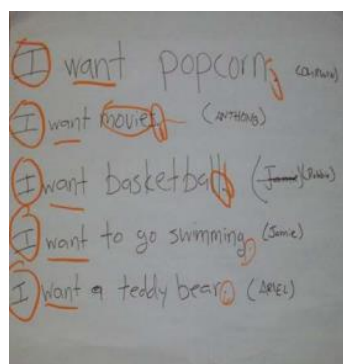 I want popcorn.
I want movies. (ANTHONY)
I want basketball. (Robbie)
I want to go swimming. (Jamie)
I want a teddy bear. (ARIEL)